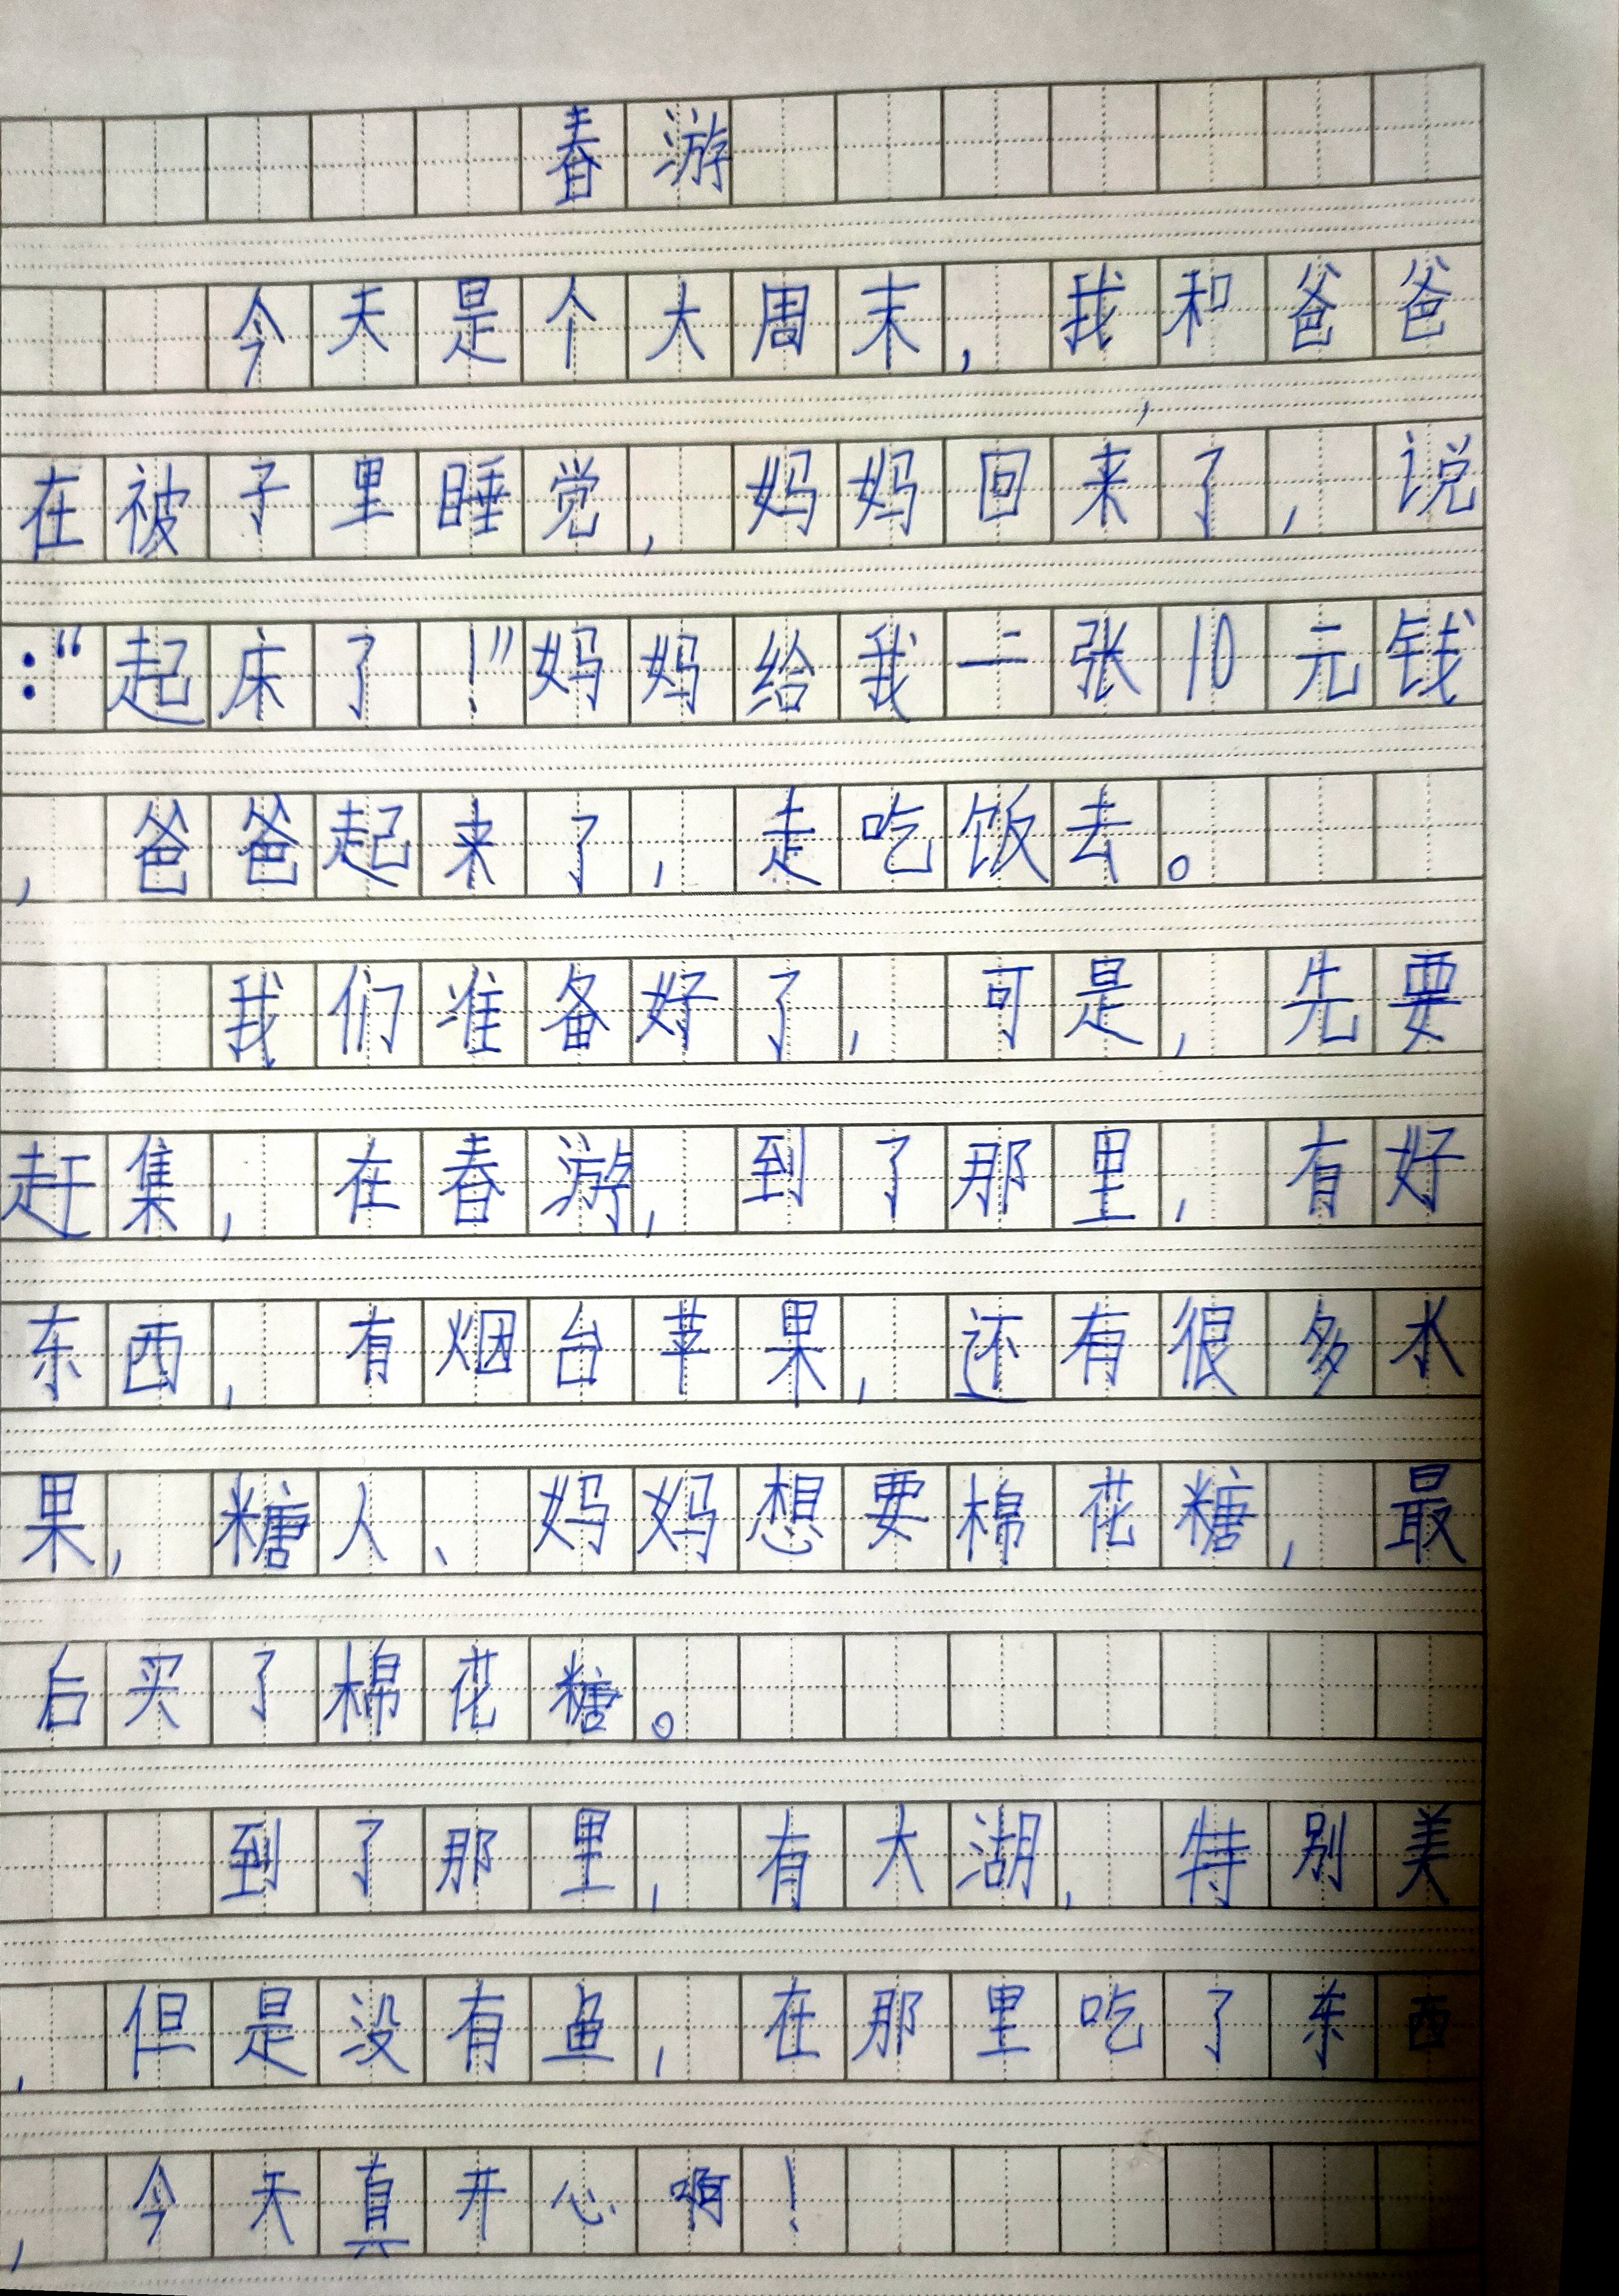 春游
今天是个大周末，我和爸爸
在被子里睡觉，妈妈回来了，说
：“起床了！”妈妈给我一张10元钱
，爸爸起来了，走吃饭去。
我们准备好了，可是，先要
赶集，在春游，到了那里，有好
东西，有烟台苹果，还有很多水
果，糖人、妈妈想要棉花糖，最
后买了棉花糖。
到了那里，有大湖，特别美
，但是没有鱼，在那里吃了东西
，今天真开心啊！